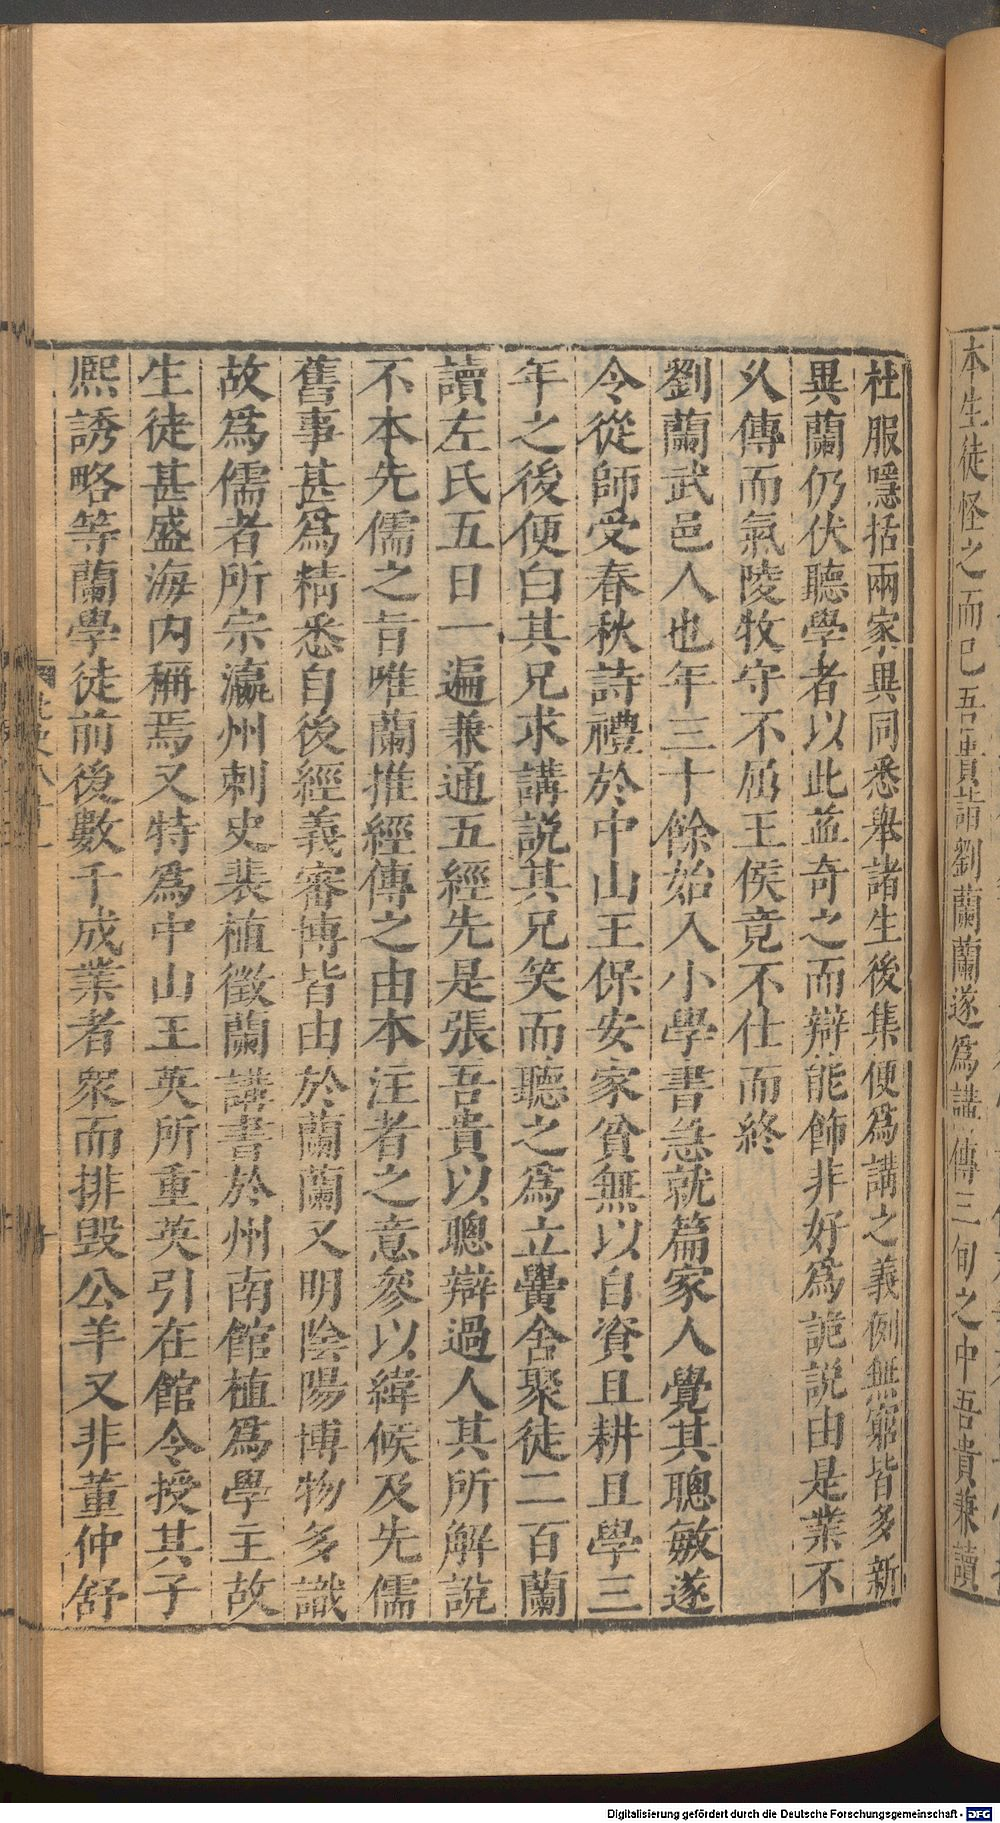 本生徒怪之而已吾貴詣劉蘭蘭遂爲講傳三旬之中吾貴兼讀
杜服隱括兩家異同悉舉諸生後集便爲講之義例無窮皆多新
異蘭仍伏聽學者以此益奇之而辯能飾非好爲詭說由是業不
久傳而氣陵牧守不屈王侯竟不仕而終
劉蘭武邑人也年三十餘始入小學書急就篇家人覺其聰敏遂
令從師受春秋詩禮於中山王保安家貧無以自資且耕且學三
年之後便白其兄求講說其兄笑而聽之爲立黌舍聚徒二百蘭
讀左氏五日一遍兼通五經先是張吾貴以聰辯過人其所解說
不本先儒之旨唯蘭推經傳之由本注者之意參以緯候及先儒
舊事甚爲精悉自後經義審博皆由於蘭蘭又明陰陽博物多識
故爲儒者所宗瀛州刺史裴植徵蘭講書於州南館植爲學主故
生徒甚盛海內稱焉又特爲中山王英所重英引在館令授其子
熙誘略等蘭學徒前後數千成業者衆而排毀公羊又非董仲舒
Digitalisierung gefördert durch die Deutsche Forschungsgemeinschaft - DFG